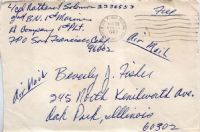 L/Cpl Nathan J. Solomon 2336533
2nd B.N. 1st Marines
H Company 1st Plt.
FPO San Francisco Calif.
96602
Free
Air Mail
Air Mail
Beverly J. Fisher
245 North Kenilworth Ave.
Oak Park, Illinois
60302